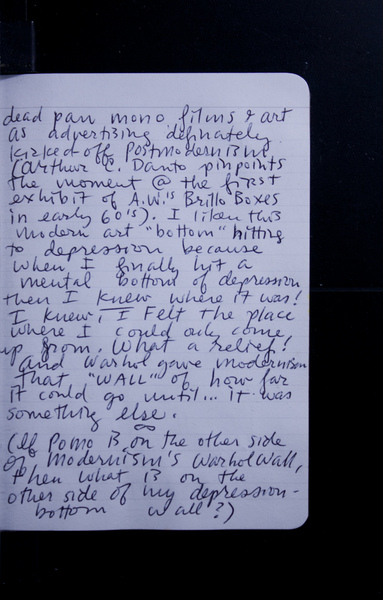 dead pan mono films & art
as advertising definately
kicked off Postmodernism
(Arthur C. Danto pinpoints
the moment @ the first
exhibit of A.W.'s Brillo Boxes
in early 60's). I liken this
modern art "bottom" hitting
to depression because
when I finally hit a
mental bottom of depression
then I knew where it was!
I knew, I Felt the place
where I could only come
up from. What a relief!
And Warhol gave modernism
that "WALL" of how far
it could go until... it was
something else.
∞
(If Pomo is on the other side
of Modernism's Warhol Wall,
then what is on the
other side of my depression-
bottom wall?)